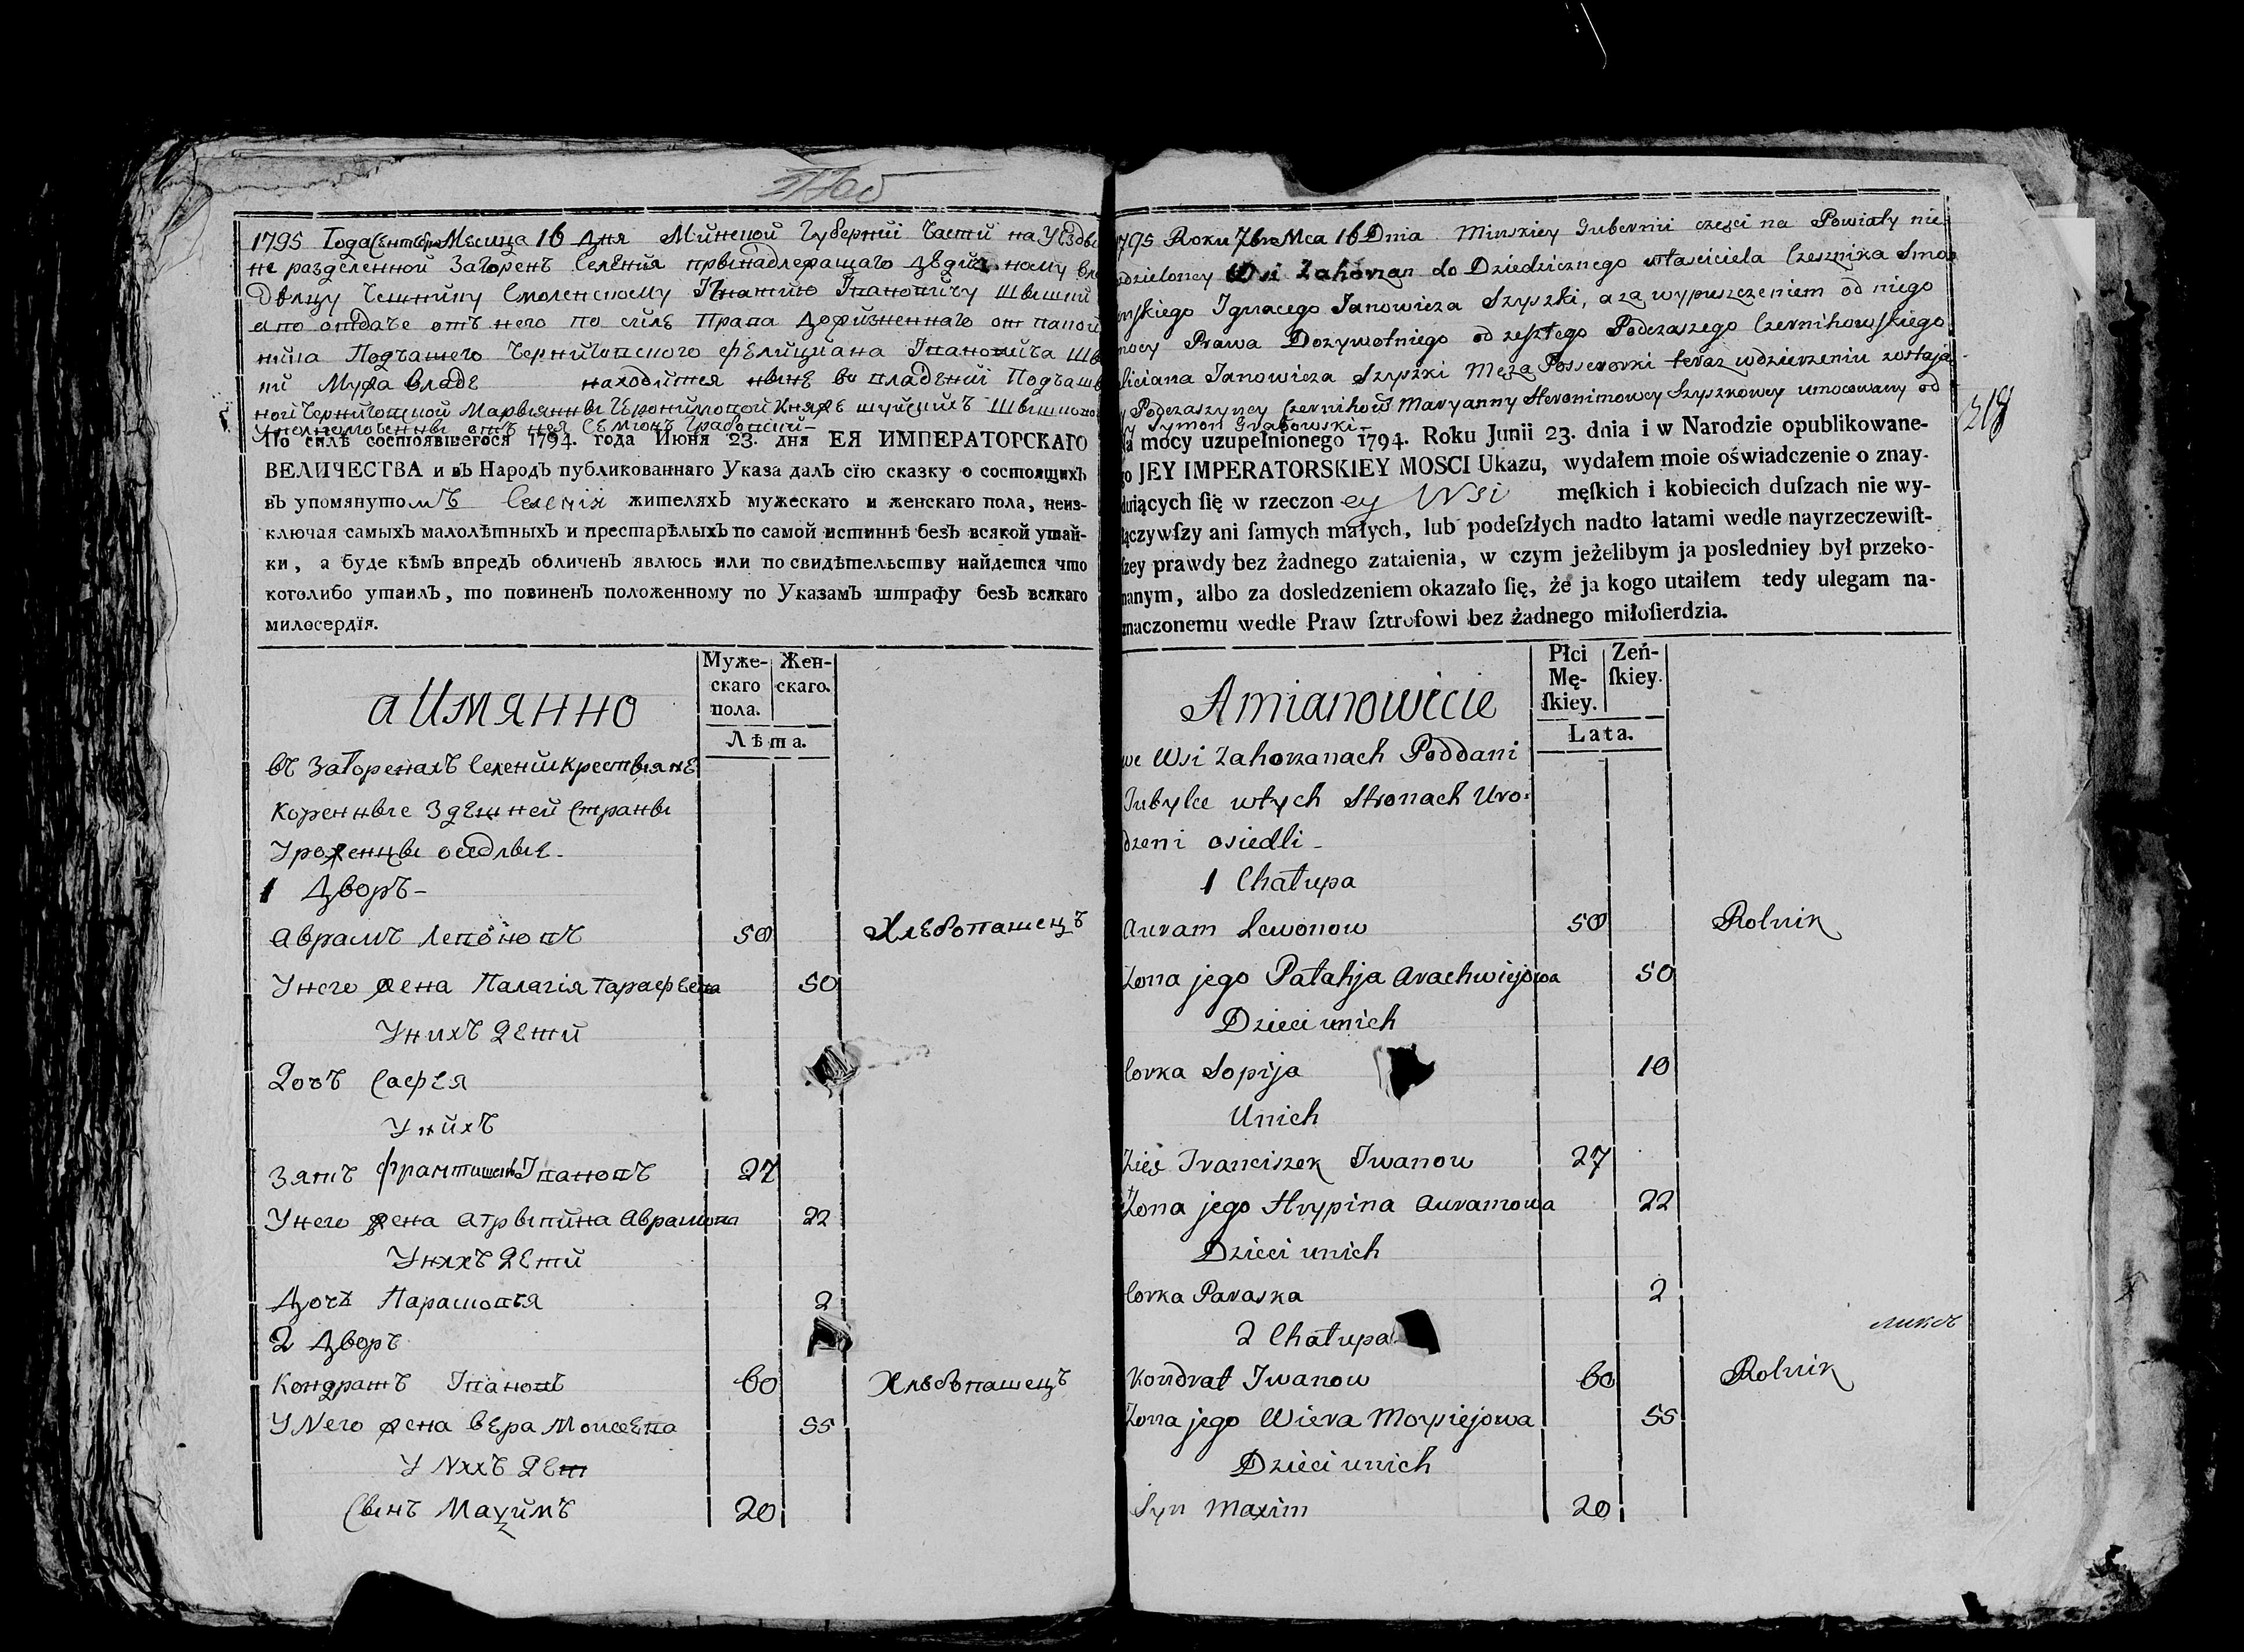 1795 Года Сентебра Месица 16 Дня Минской Губернiи Части на Уѣзды
не разделенной Загоренъ Селения принадлежащаго Дѣдичному вла
Делцу Чешнику Смоленскому Игнатию Ивановичу Шышки
а по отдаче отъ него по силѣ Права Дожизненнаго от
Подчашего Черниговского Фѣлициана Ивановича Шы
Мужа владе находится нынѣ во владѣнiи Подчаш
ной Черниговской Марыянны
Уполномоченны отъ нея Сѣмионъ Грабовский
По силѣ состоявшегося 1794. года Июня 23. дня ЕЯ ИМПЕРАТОРСКАГО
ВЕЛИЧЕСТВА и въ Народъ публикованнаго Указа далъ сїю сказку о состоящихъ
въ упомянутомъ Селенiи жителяхъ мужескаго и женскаго пола, неиз-
ключая самыхъ малолѣтныхъ и престарѣлыхъ по самой истиннѣ безъ всякой утай-
ки, а буде кѣмъ впредъ обличенъ явлюсь или по свидѣтельству найдется что
котолибо утаилъ, то повиненъ положенному по Указамъ штрафу безъ всякаго
милосердїя.
аИмянно
Муже-скаго пола. Жен-скаго.
Лѣта.
въ Загоренахъ Селенiи крестьянѣ
Коренные Здѣшней Страны
Уроженцы оседлые-
1 Дворъ-
Аврамъ Левоновъ 50 Хлѣбопашецъ
У него жена Палагiя Тарафѣева 50
У нихъ Дѣти
Дочъ Сафѣя
У нихъ
Зятъ Францишекъ Ивановъ 27
У него жена Агрыпина Аврамова 22
У нихъ Дѣти
Дочъ Парасковъя 2
2 Дворъ
Кондратъ Ивановъ 60 Хлѣбопашецъ
У него жена Вѣра Моисеѣва 55
У нихъ Дѣт
Сынъ Махимъ 20
1795 Roku 7bra Mca 16 Dnia Minskiey Gubernii częsci na Powiaty nie
dzieloney Wsi Zahorzan do Dziedzicznego własciciela Czesznika Smo
enskiego Ignacego Janowicza Szyszki, a za wypuszczeniem od niego
mocy Prawa Dozywotniego od zeszłego Podczaszego Czernihowskiego
liciana Janowicza Szyszki Męża Possessorki teraz w dzierzeniu zostaja
y Podczaszyney Czernihow Maryanny Heronimowey Szyszkowey umocowany od
y Symon Grabowski-
218
a mocy uzupełnionego 1794. Roku Junii 23. dnia i w Narodzie opublikowane-
go JEY IMPERATORSKIEY MOSCI Ukazu, wydałem moie oświadczenie o znay-
duiących ſię w rzeczoney Wsi męſkich i kobiecich duſzach nie wy-
łączywſzy ani ſamych małych, lub podeſzłych nadto łatami wedle nayrzeczewiſt-
ſzey prawdy bez żadnego zataienia, w czym jeżelibym ja posledniey był przeko-
nanym, albo za dosledzeniem okazało ſię, że ja kogo utaiłem tedy ulegam na-
znaczonemu wedle Praw ſztrofowi bez żadnego miłoſierdzia.
Amianowicie
Płci Mę-ſkiey. Zeń-ſkiey.
Lata.
we Wsi Zahorzanach Poddani
Tubylce w tych Stronach Uro-
dzeni osiedli-
1 Chałupa
Auram Lewonow 50 Rolnik
Zona jego Pałahja Arachwiejowa 50
Dzieci unich
Corka Sopija 10
Unich
Zięć Franciszek Iwanow 27
Zona jego Hrypina Auramowa 22
Dzieci unich
Corka Paraska 2
2 Chałupa
Kondrat Iwanow 60 Rolnik
Zona jego Wiera Moysiejowa 55
Dzieci unich
Syn Maxim 20